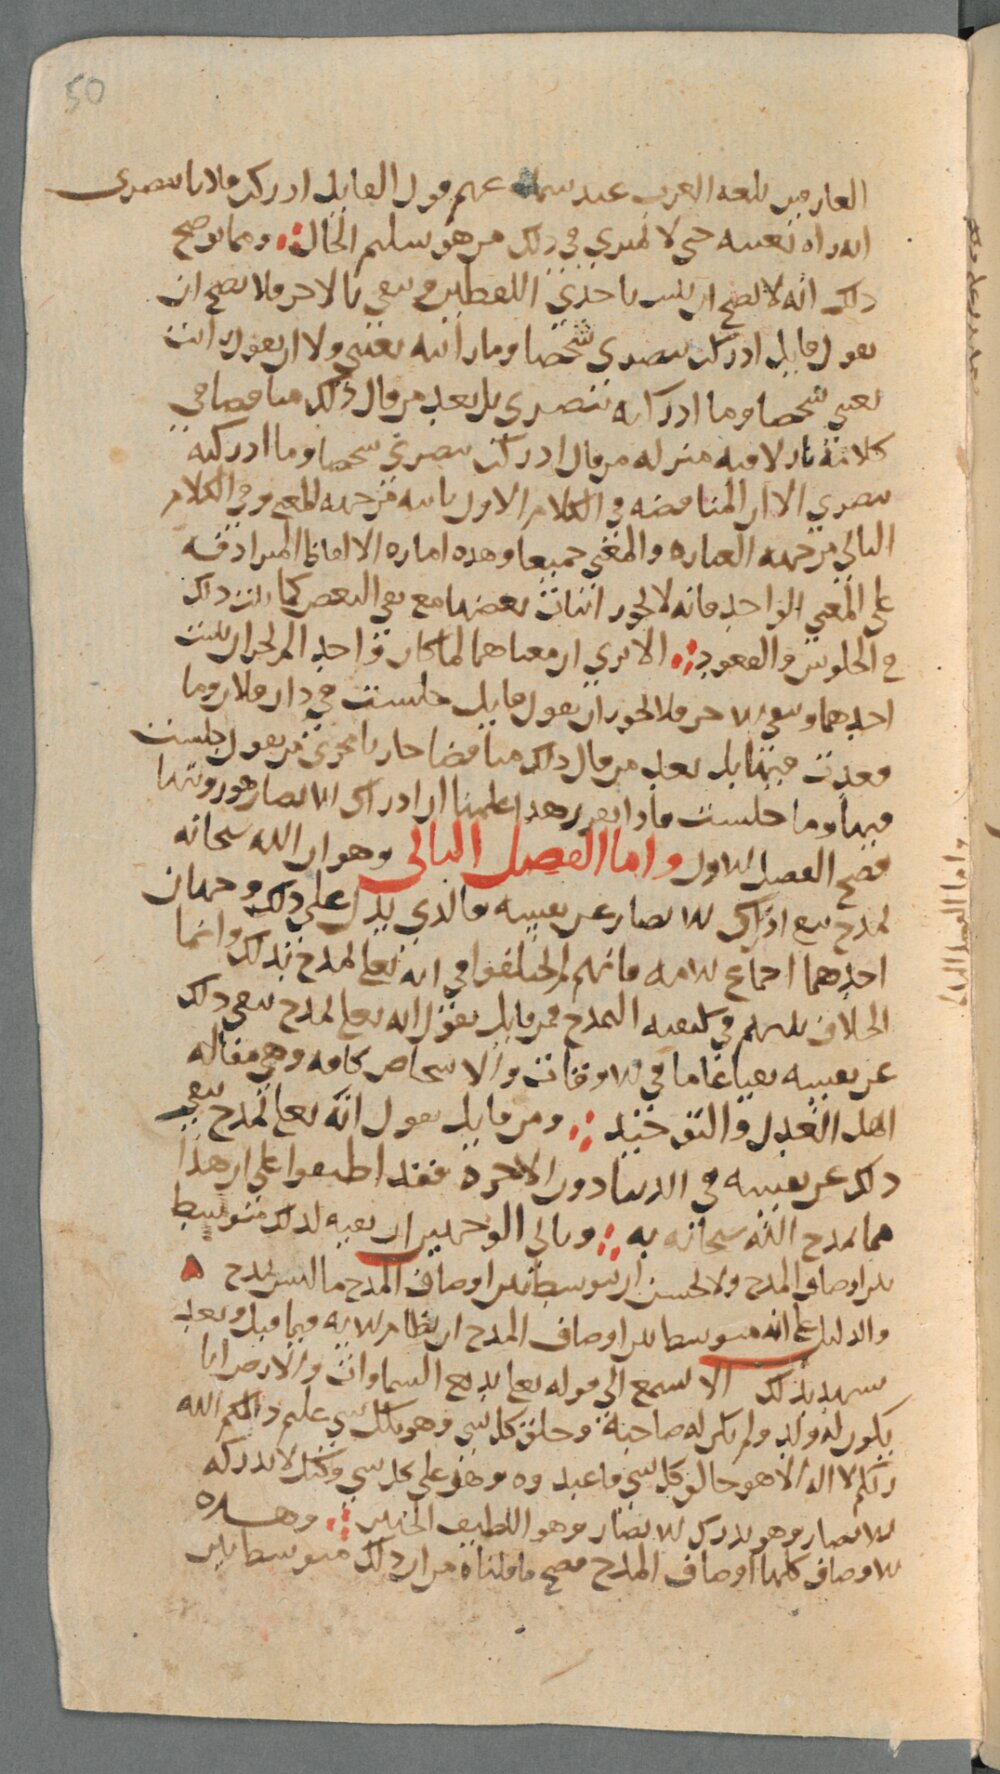 50
العارفين بلغة العرب عند سماع عهم قول القايل ادركت فلانا ببصري
انه راه بعينه حتى لا يمتري في ذلك من هو سليم الحال ومما يوضح
ذلك انه لا يصح ان يثبت باحدى اللفظين وينفي بالاخر فلا يصح ان
يقول قايل ادركت ببصري شخصا وما رايته بعيني ولا ان يقول رايت
بعيني شخصا وما ادركته ببصري بل يعد من قال ذلك مناقضا في
كلامه نازلا فيه منزلة من قال ادركت ببصري شخصا وما ادركته
ببصري الا ان المناقضة في الكلام الاول ثابته من جهة المعنى وفي الكلام
الثاني من جهة العبارة والمعنى جميعا وهذه امارة الالفاظ المترادفة
على المعنى الواحد فانه لا يجوز اثبات بعضها مع نفي البعض كما ذلك
في الجلوس والقعود الا ترى ان معناهما لما كان واحدا لم يجز ان يثبت
احدهما وينفي الاخر فلا يجوز ان يقول قايل جلست في دار فلان وما
قعدت فيها بل يعد من قال ذلك مناقضا جاريا مجرى من يقول جلست
فيها وما جلست فاذا تقرر هذا علمنا ان ادراك الابصار هو رويتها
فصح الفصل الاول واما الفصل الثاني وهو ان الله سبحانه
تمدح بنفي ادراك الابصار عن نفسه فالذي يدل على ذلك وجهان
احدهما اجماع الامة فانهم لم يختلفوا في انه تعالى تمدح بذلك وانما
الخلاف بينهم في كيفية التمدح فمن قايل يقول انه تعالى تمدح بنفي ذلك
عن نفسه نفيا عاما في الاوقات والاشخاص كافة وهي مقالة
اهل العدل والتوحيد ومن قايل يقول انه تعالى تمدح بنفي
ذلك عن نفسه في الدنيا دون الاخرة فقد اطبقوا على ان هذا
مما تمدح الله سبحانه به وثاني الوجهين ان نفيه لذلك متوسط
بين اوصاف المدح ولا يحسن ان يتوسط بين اوصاف المدح ما ليس بمدح ه
والدليل على انه متوسط بين اوصاف المدح ان نظام الاية فيما قبل وبعد
يشهد بذلك الا تسمع الى قوله تعالى بديع السماوات والارض انا
يكون له ولد ولم تكن له صاحبة وخلق كل شي وهو بكل شي عليم ذالكم الله
ربكم لا اله الا هو خالق كل شي فاعبدوه وهو على كل شي وكيل لا تدركه
الابصار وهو يدرك الابصار وهو اللطيف الخبير وهذه
الاوصاف كلها اوصاف المدح فصح ما قلناه من ان ذلك متوسط بين
واما الفصل الثاني